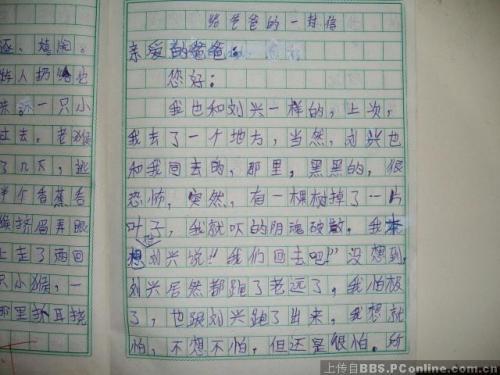 逐、嬉闹。
人扔
一只小
过去。老猴
了几下，逃
半个香蕉
挤眉弄眼
上走了两回
只小猴，一
那里抓耳挠
给爸爸的一封信
亲爱的爸爸
您好：
我也和刘兴一样的，上次，
我去了一个地方，当然，刘兴也
和我同去的，那里，黑黑的，很
恐怖，突然，有一棵树掉了一片
叶子，我就吓的阴魂破散。我本
想刘兴说“我们回去吧！”没想到
刘兴居然都跑了老远了，我怕极
了，也跟刘兴跑了出来，我想就
怕，不想不怕，但还是很怕。所
上传自BBS.PConline.com.cn